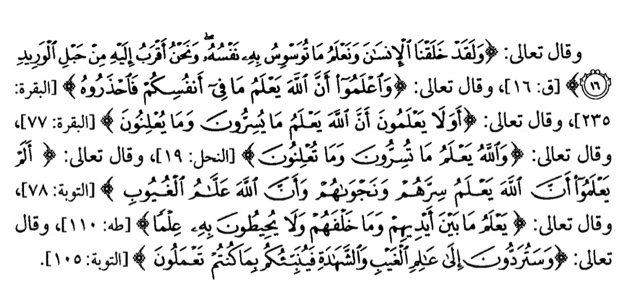 وقال تعالى: ﴿وَلَقَدْ خَلَقْنَا الْإِنسَانَ وَنَعْلَمُ مَا تُوَسْوِسُ بِهِۦ نَفْسُهُۥ ۖ وَنَحْنُ أَقْرَبُ إِلَيْهِ مِنْ حَبْلِ الْوَرِيدِ
١٦﴾ [ق: ١٦]، وقال تعالى: ﴿وَاعْلَمُوٓا أَنَّ اللَّهَ يَعْلَمُ مَا فِىٓ أَنفُسِكُمْ فَاحْذَرُوهُ﴾ [البقرة:
٢٣٥]، وقال تعالى: ﴿أَوَلَا يَعْلَمُونَ أَنَّ اللَّهَ يَعْلَمُ مَا يُسِرُّونَ وَمَا يُعْلِنُونَ﴾ [البقرة: ٧٧]،
وقال تعالى: ﴿وَاللَّهُ يَعْلَمُ مَا تُسِرُّونَ وَمَا تُعْلِنُونَ﴾ [النحل: ١٩]، وقال تعالى: ﴿أَلَمْ
يَعْلَمُوٓا أَنَّ اللَّهَ يَعْلَمُ سِرَّهُمْ وَنَجْوَىٰهُمْ وَأَنَّ اللَّهَ عَلَّٰمُ الْغُيُوبِ﴾ [التوبة: ٧٨]،
وقال تعالى: ﴿يَعْلَمُ مَا بَيْنَ أَيْدِيهِمْ وَمَا خَلْفَهُمْ وَلَا يُحِيطُونَ بِهِۦ عِلْمًا﴾ [طه: ١١٠]، وقال
تعالى: ﴿وَسَتُرَدُّونَ إِلَىٰ عَٰلِمِ الْغَيْبِ وَالشَّهَٰدَةِ فَيُنَبِّئُكُم بِمَا كُنتُمْ تَعْمَلُونَ﴾ [التوبة: ١٠٥].